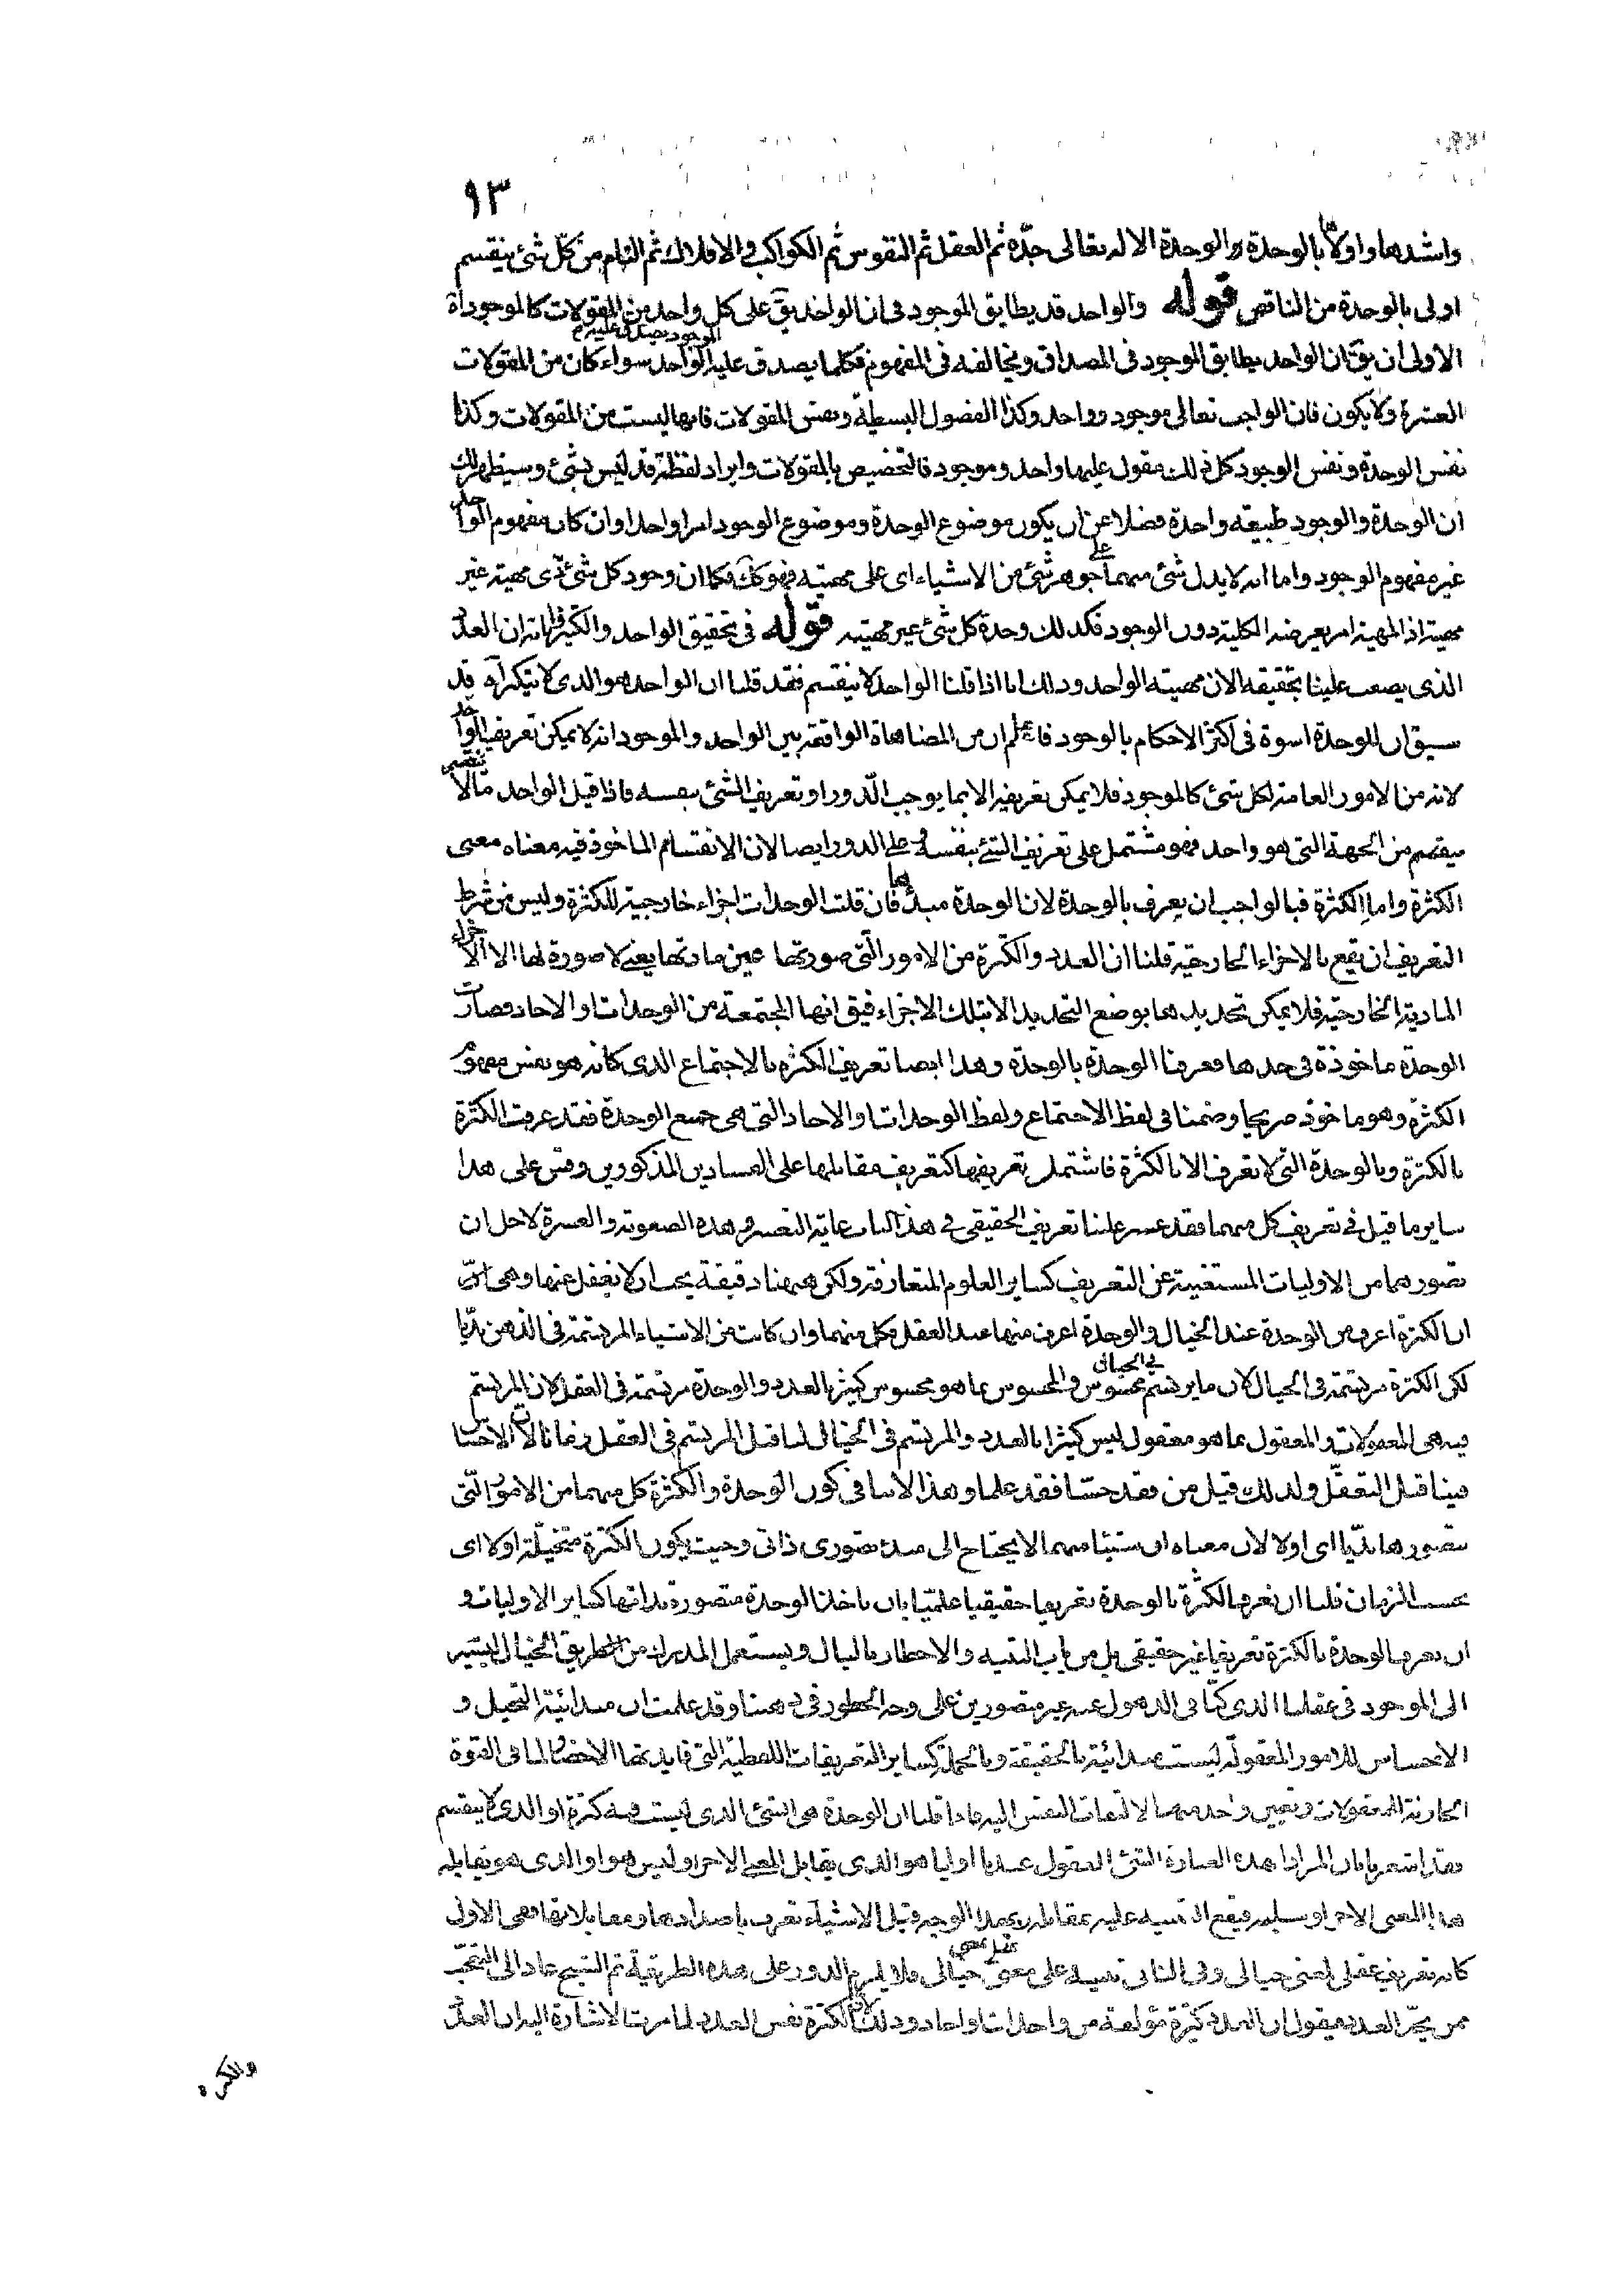 ٩٣
واشدها واولاها بالوحدة والوحدة الاله تعالى جدّه ثم العقل ثم النفوس ثم الكواكب والافلاك ثم التام من كلّ شئ ينقسم
اولى بالوحدة من الناقص قوله والواحد قد يطابق الموجود فى ان الواحد يق على كل واحد من المقولات كالموجود اه
الاولى ان يق ان الواحد يطابق الموجود فى المصداق ويخالفه فى المفهوم فكلما يصدق عليه الواحد الموجود يصدق عليه سواء كان من المقولات
العشرة ولا يكون فان الواجب تعالى موجود وواحد وكذا الفصول البسيطة ونفس المقولات فانها ليست من المقولات وكذا
نفس الوحدة ونفس الوجود كل ذلك مقول عليها واحد وموجود فالتخصيص بالمقولات وايراد لفظة قد ليس بشئ وسيظهر لك
ان الوحدة والوجود طبيعة واحدة فضلا عن ان يكون موضوع الوحدة وموضوع الوجود امرا واحدا وان كان مفهوم الواحد
غير مفهوم الوجود واما انه لا يدل شئ منهما على جوهر شئ من الاشياء اى على مهيته فهو كك فكما ان وجود كل شئ ذى مهية غير
مهيته اذ المهية امر يعرضه الكلية دون الوجود فكذلك وحدة كل شئ غير مهيته قوله فى تحقيق الواحد والكثير وابانة ان العدد
الذى يصعب علينا تحقيقه الان مهيته الواحد وذلك انا اذا قلنا الواحد لا ينقسم فقد قلنا ان الواحد هو الذى لا يتكثر آه قد
سبق ان للوحدة اسوة فى اكثر الاحكام بالوجود فاعلم ان من المضاهاة الواقعة بين الواحد والموجود انه لا يمكن تعريف الواحد
لانه من الامور العامة لكل شئ كالموجود فلا يمكن تعريفه الا بما يوجب الدّور او تعريف الشئ بنفسه فاذا قيل الواحد ما لا
ينقسم من الجهة التى هو واحد فهو مشتمل على تعريف الشئ بنفسه وعلى الدور ايضا لان الانقسام الماخوذ فيه معناه معنى
الكثرة واما الكثرة فبالواجب ان يعرف بالوحدة لان الوحدة مبدئها فان قلت الوحدات اجزاء خارجية للكثرة وليس من شرط
التعريف ان يقع بالاجزاء الخارجية قلنا ان العدد والكثرة من الامور التى صورتها عين مادتها يعنى لا صورة لها الا الاجزاء
المادية الخارجية فلا يمكن تحديدهما بوضع التحديد الا بتلك الاجزاء فيق انها المجتمعة من الوحدات او الاحاد فصارت
الوحدة ماخوذة فى حدها فعرفنا الوحدة بالوحدة وهذا ايضا تعريف الكثرة بالاجتماع الذى كانه هو نفس مفهوم
الكثرة وهو ماخوذ صريحا وضمنا فى لفظ الاجتماع ولفظ الوحدات او الاحاد التى هى جمع الوحدة فقد عرفت الكثرة
بالكثرة وبالوحدة التى لا تعرف الا بالكثرة فاشتمل تعريفها كتعريف مقابلها على الفسادين المذكورين وقس على هذا
ساير ما قيل فى تعريف كل منهما فقد عسر علينا تعريف الحقيقى فى هذا الباب غاية التعسر وهذه الصعوبة والعسرة لاجل ان
تصورهما من الاوليات المستغنية عن التعريف كساير العلوم المتعارفة ولكن ههنا دقيقة يجب ان لا نغفل عنها وهى
ان الكثرة اعرف من الوحدة عند الخيال والوحدة اعرف منها عند العقل فكل منهما وان كانت من الاشياء المرتسمة فى الذهن بديّا
لكن الكثرة مرتسمة فى الخيال لان ما يرتسم فى الخيال محسوس والمحسوس بما هو محسوس كثير بالعدد والوحدة مرتسمة فى العقل لان المرتسم
فيه هى المعقولات والمعقول بما هو معقول ليس كثيرا بالعدد والمرتسم فى الخيال لنا قبل المرتسم فى العقل زمانا لان الاحساس
فينا قبل التعقّل ولذلك قيل من فقد حسّا فقد علما وهذا لا ينافى كون الوحدة والكثرة كل منهما من الامور التى
نتصورها بديّا اى اولا لان معناه ان شيئا منهما لا يحتاج الى مبدء تصورى ذاتى وحيث يكون الكثرة متخيّلة اولا اى
بحسب الزمان فلنا ان نعرف الكثرة بالوحدة تعريفا حقيقيا عقليا بان ناخذ الوحدة متصورة بذاتها كساير الاوليات و
ان نعرف الوحدة بالكثرة تعريفا غير حقيقى بل من باب التنبيه والاخطار بالبال ويستعمل المدرك من الطريق الخيال ليتنبه
الى الموجود فى عقلنا الذى كنّا فى الذهول عنه غير متصورين على وجه الخطور فى ذهننا وقد علمت ان مبدائية التخيل و
الاحساس للامور المعقولة ليست مبدائية بالحقيقة وبالجملة كساير التعريفات اللفظية التى فايدتها الاخطار لما فى القوة
الخازنة للمعقولات وتعيين واحد منها لالتفات النفس اليه فاذا قلنا ان الوحدة هى الشئ الذى ليست فيه كثرة او الذى لا ينقسم
فقد اشعرنا بان المراد بهذه العبارة الشئ المعقول عندنا اوليا هو الذى يقابل المعنى الاخر او ليس هو او الذى هو يقابله
هذا المعنى الاخر او سلبه فيقع التنبيه عليه بمقابله وبهذا الوجه قيل الاشياء تعرف باضدادها ومقابلاتها ففى الاولى
كانه تعريف عقلى لمعنى خيالى وفى الثانى تنبيه على معنى عقلى بمعنى خيالى فلا يلزم الدور على هذه الطريقة ثم الشيخ عاد الى التعجب
ممن يحدّ العدد فيقول ان العدد كثرة مؤلفة من واحدات او احاد وذلك لان الكثرة نفس العدد لما مرت الاشارة اليه ان العدد
والكثرة